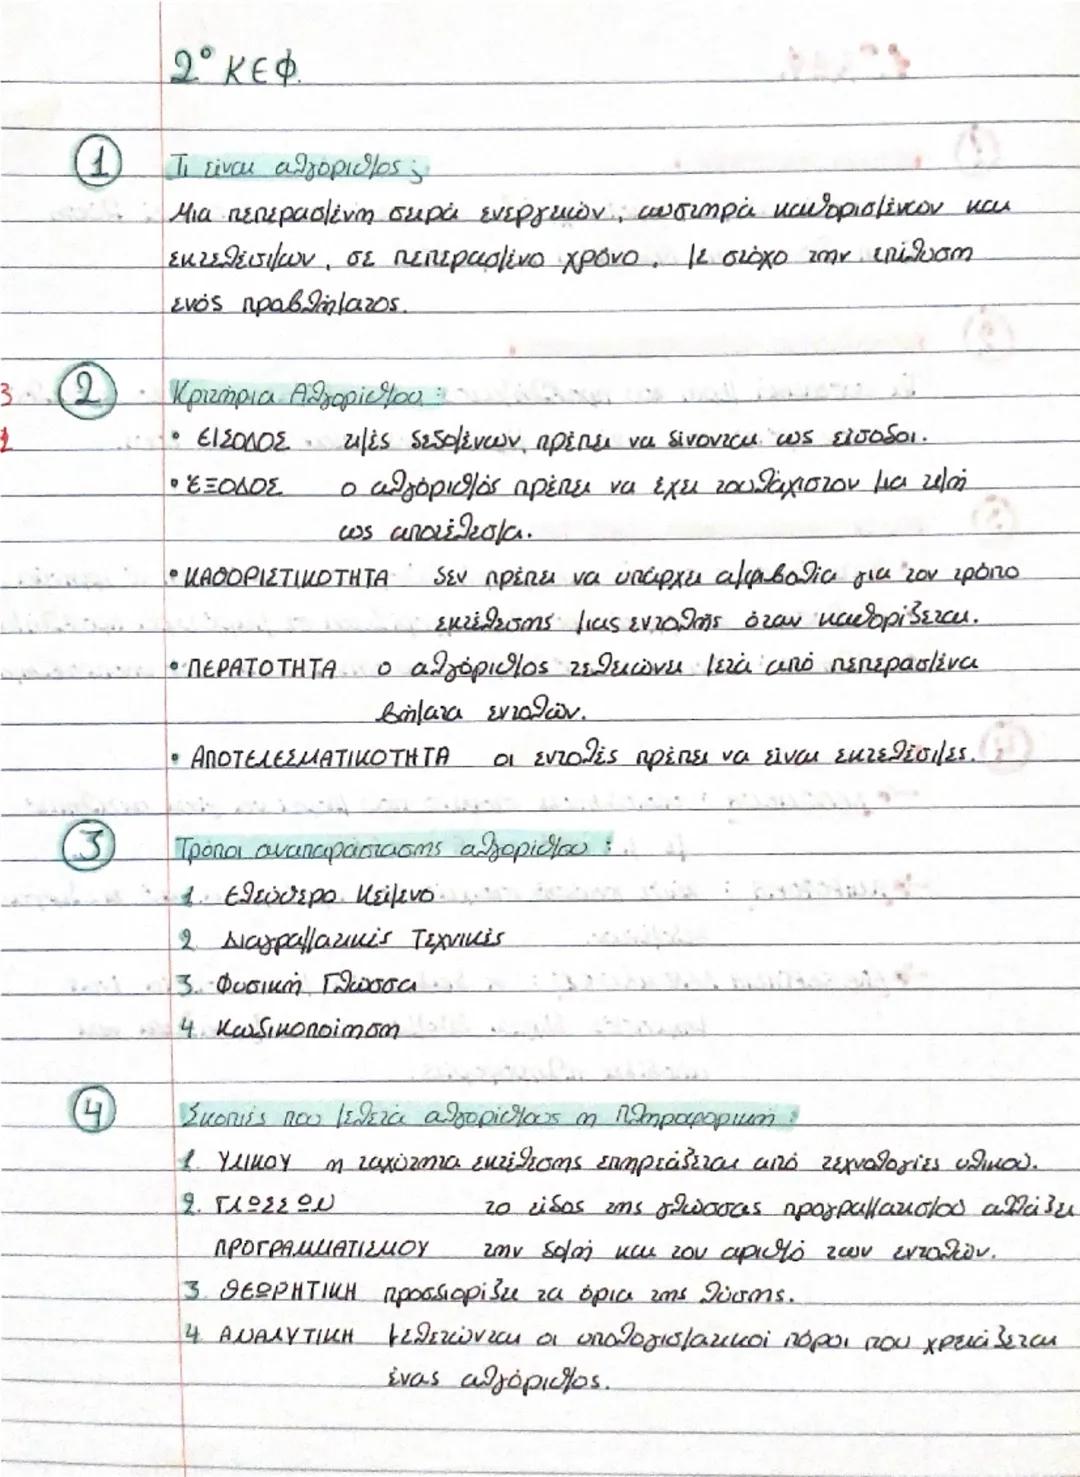 2° ΚΕΦ.
1 Τι είναι αλγόριθμος ;
Μια πεπερασμένη σειρά ενεργειών, αυστηρά καθορισμένων και
εκτελέσιμων, σε πεπερασμένο χρόνο, με στόχο την επίλυση
ενός προβλήματος.
2 Κριτήρια Αλγορίθμου :
• ΕΙΣΟΔΟΣ τιμές δεδομένων πρέπει να δίνονται ως είσοδοι.
• ΕΞΟΔΟΣ ο αλγόριθμός πρέπει να έχει τουλάχιστον μια τιμή
ως αποτέλεσμα.
• ΚΑΘΟΡΙΣΤΙΚΟΤΗΤΑ δεν πρέπει να υπάρχει αμφιβολία για τον τρόπο
εκτέλεσης μιας εντολής όταν καθορίζεται.
• ΠΕΡΑΤΟΤΗΤΑ ο αλγόριθμος τελειώνει μετά από πεπερασμένα
βήματα εντολών.
• ΑΠΟΤΕΛΕΣΜΑΤΙΚΟΤΗΤΑ οι εντολές πρέπει να είναι εκτελέσιμες.
3 Τρόποι αναπαράστασης αλγορίθμου :
1. Ελεύθερο Κείμενο
2. Διαγραμματικές Τεχνικές
3. Φυσική Γλώσσα
4. Κωδικοποίηση
4 Σκοπιές που μελετά αλγορίθμους η Πληροφορική :
1. ΥΛΙΚΟΥ η ταχύτητα εκτέλεσης επηρεάζεται από τεχνολογίες υλικού.
2. ΓΛΩΣΣΩΝ το είδος της γλώσσας προγραμματισμού αλλάζει
ΠΡΟΓΡΑΜΜΑΤΙΣΜΟΥ την δομή και τον αριθμό των εντολών.
3. ΘΕΩΡΗΤΙΚΗ προσδιορίζει τα όρια της λύσης.
4. ΑΝΑΛΥΤΙΚΗ μελετώνται οι υπολογισματικοί πόροι που χρειάζεται
ένας αλγόριθμος.